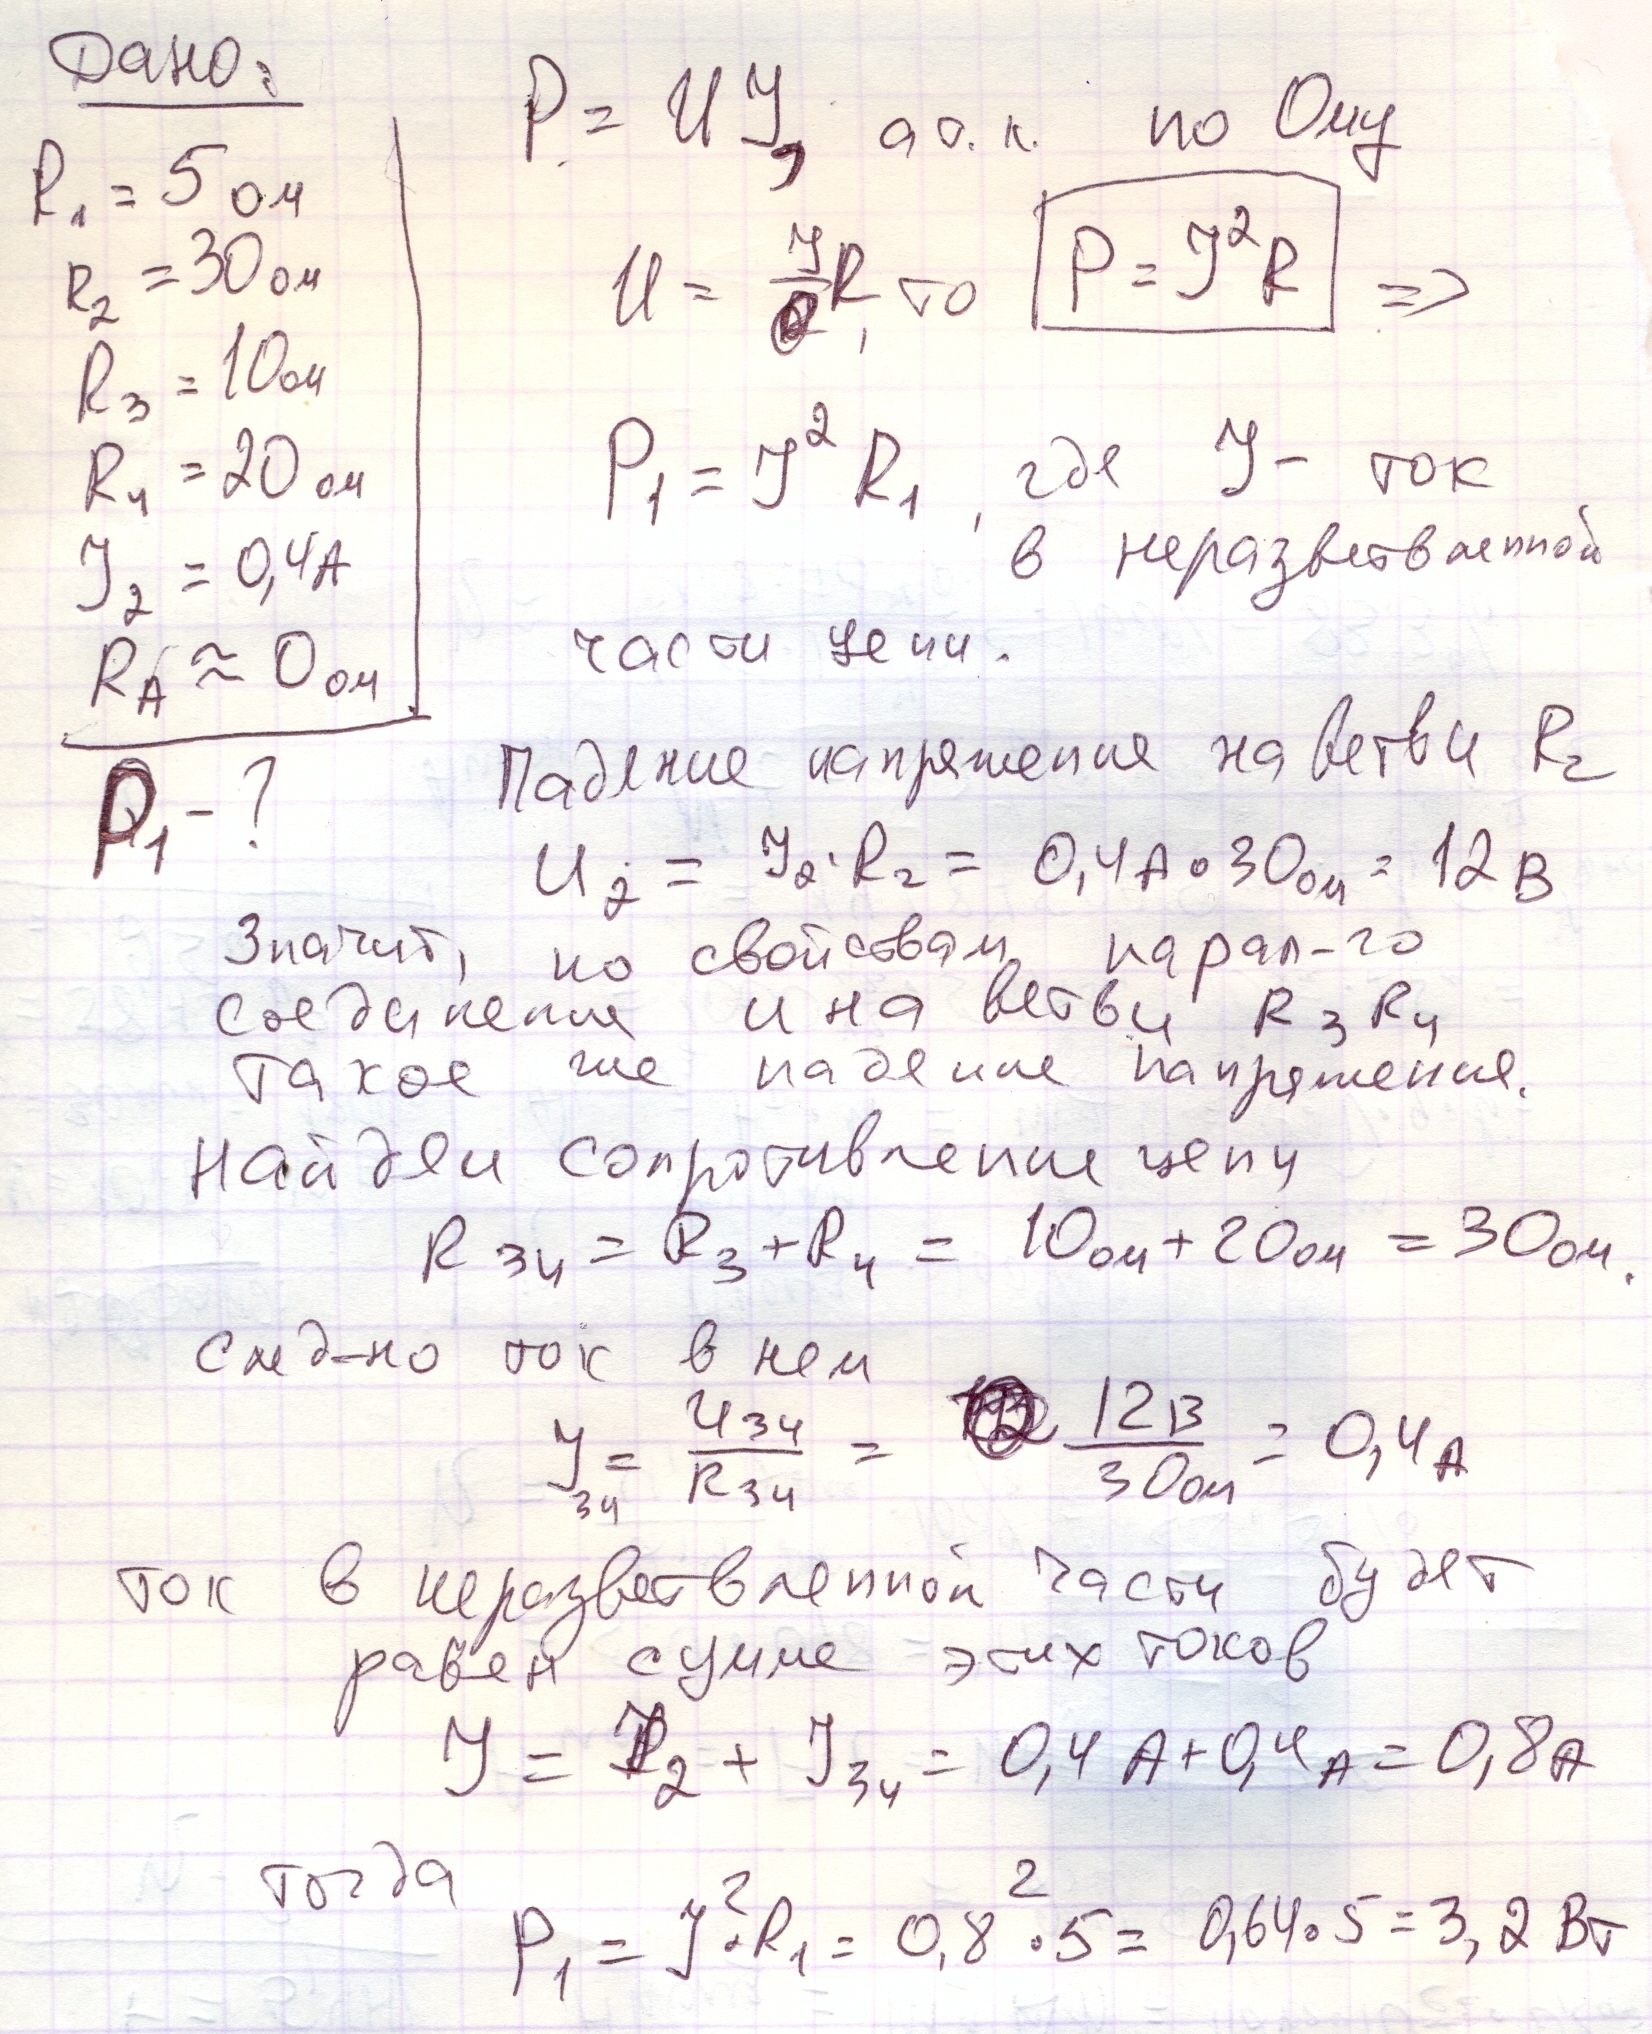 Дано:
R₁ = 5 ом
R₂ = 30 ом
R₃ = 10 ом
R₄ = 20 ом
J₂ = 0,4 А
R_A ≈ 0 ом
P₁ - ?
P = UJ, а т.к. по Ому
U = JR, то P = J²R =>
P₁ = J² R₁, где J - ток
в неразветвленной
части цепи.
Падение напряжения на ветви R₂
U₂ = J₂·R₂ = 0,4А·30ом = 12 В
Значит, по свойствам парал-го
соединения и на ветви R₃R₄
такое же падение напряжения.
Найдем сопротивление цепи
R₃₄ = R₃ + R₄ = 10ом + 20ом = 30ом.
след-но ток в нем
J₃₄ = U₃₄/R₃₄ = 12В/30ом = 0,4А
ток в неразветвленной части будет
равен сумме этих токов
J = J₂ + J₃₄ = 0,4 А + 0,4А = 0,8А
тогда
P₁ = J²·R₁ = 0,8²·5 = 0,64·5 = 3,2 Вт